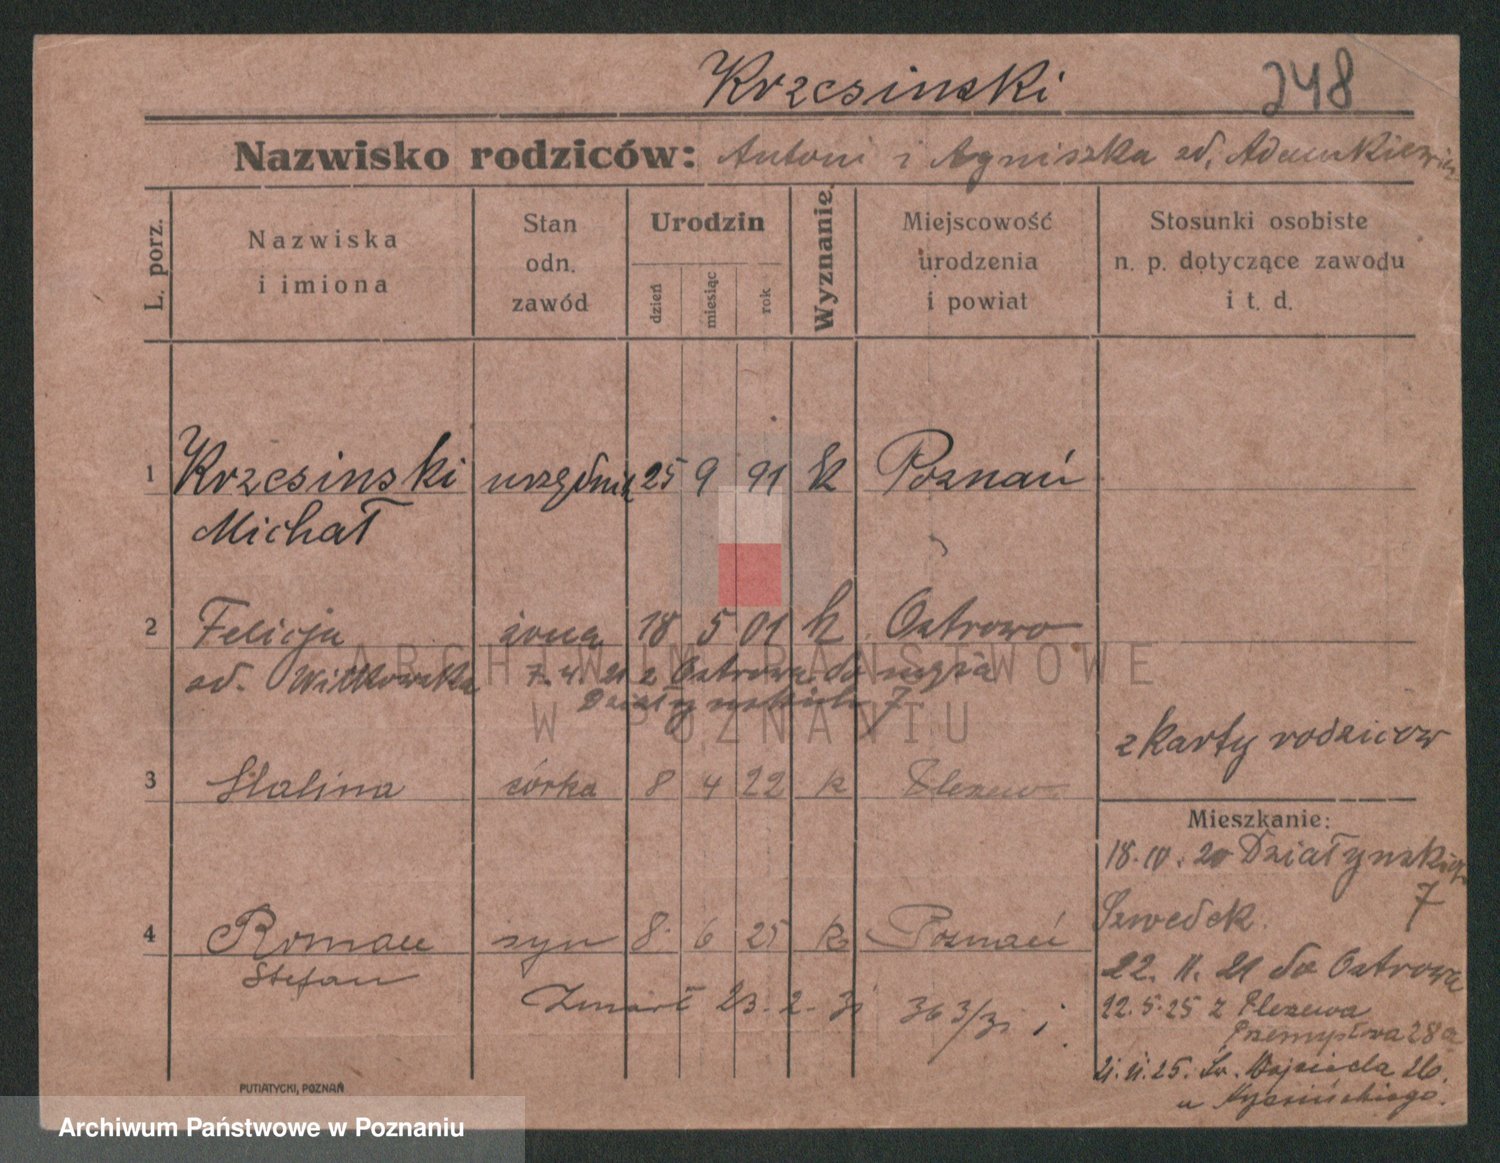 Krzesinski 248
Nazwisko rodziców: Antoni i Agniszka zd. Adamkiewicz
L. porz.
Nazwiska
i imiona
Stan
odn.
zawód
Urodzin
dzień
miesiąc
rok
Wyznanie.
Miejscowość
urodzenia
i powiat
Stosunki osobiste
n. p. dotyczące zawodu
i t. d.
1 Krzesinski urzędnik 25 9 91 k Poznań
Michał
2 Felicja żona 18 5 01 k Ostrowo
zd. Witkowska 7. 4. 21 z Ostrowa do męża
Działyńskich 7
z karty rodziców
3 Halina córka 8 4 22 k Pleszew
Mieszkanie:
18. IV. 20 Działyńskich
7
Szwedek.
4 Roman syn 8. 6 25 k Poznań
Stefan
22. 11. 21 do Ostrowa
Zmarł 23. 2. 31 363/31
12. 5. 25 z Pleszewa
Przemysłowa 28a
21. 11. 25. Św. Wojciecha 26.
u
PUTIATYCKI, POZNAŃ
ARCHIWUM PAŃSTWOWE
W POZNANIU
Archiwum Państwowe w Poznaniu